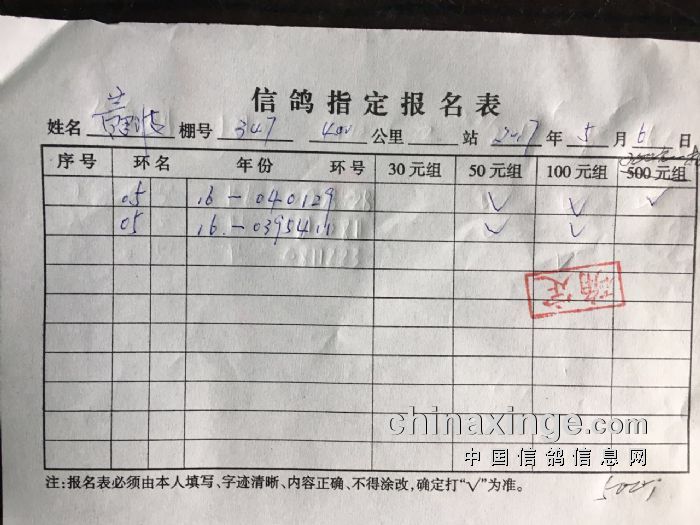 信鸽指定报名表
姓名 棚号 347 400 公里 站 2017 年 5 月 6 日
序号 环名 年份 环号 30元组 50元组 100元组 500元组
05 16-040129 √ √ √
05 16-0395411 √ √
确定
chinaxinge.com
中国信鸽信息网
注:报名表必须由本人填写、字迹清晰、内容正确、不得涂改,确定打“√”为准。